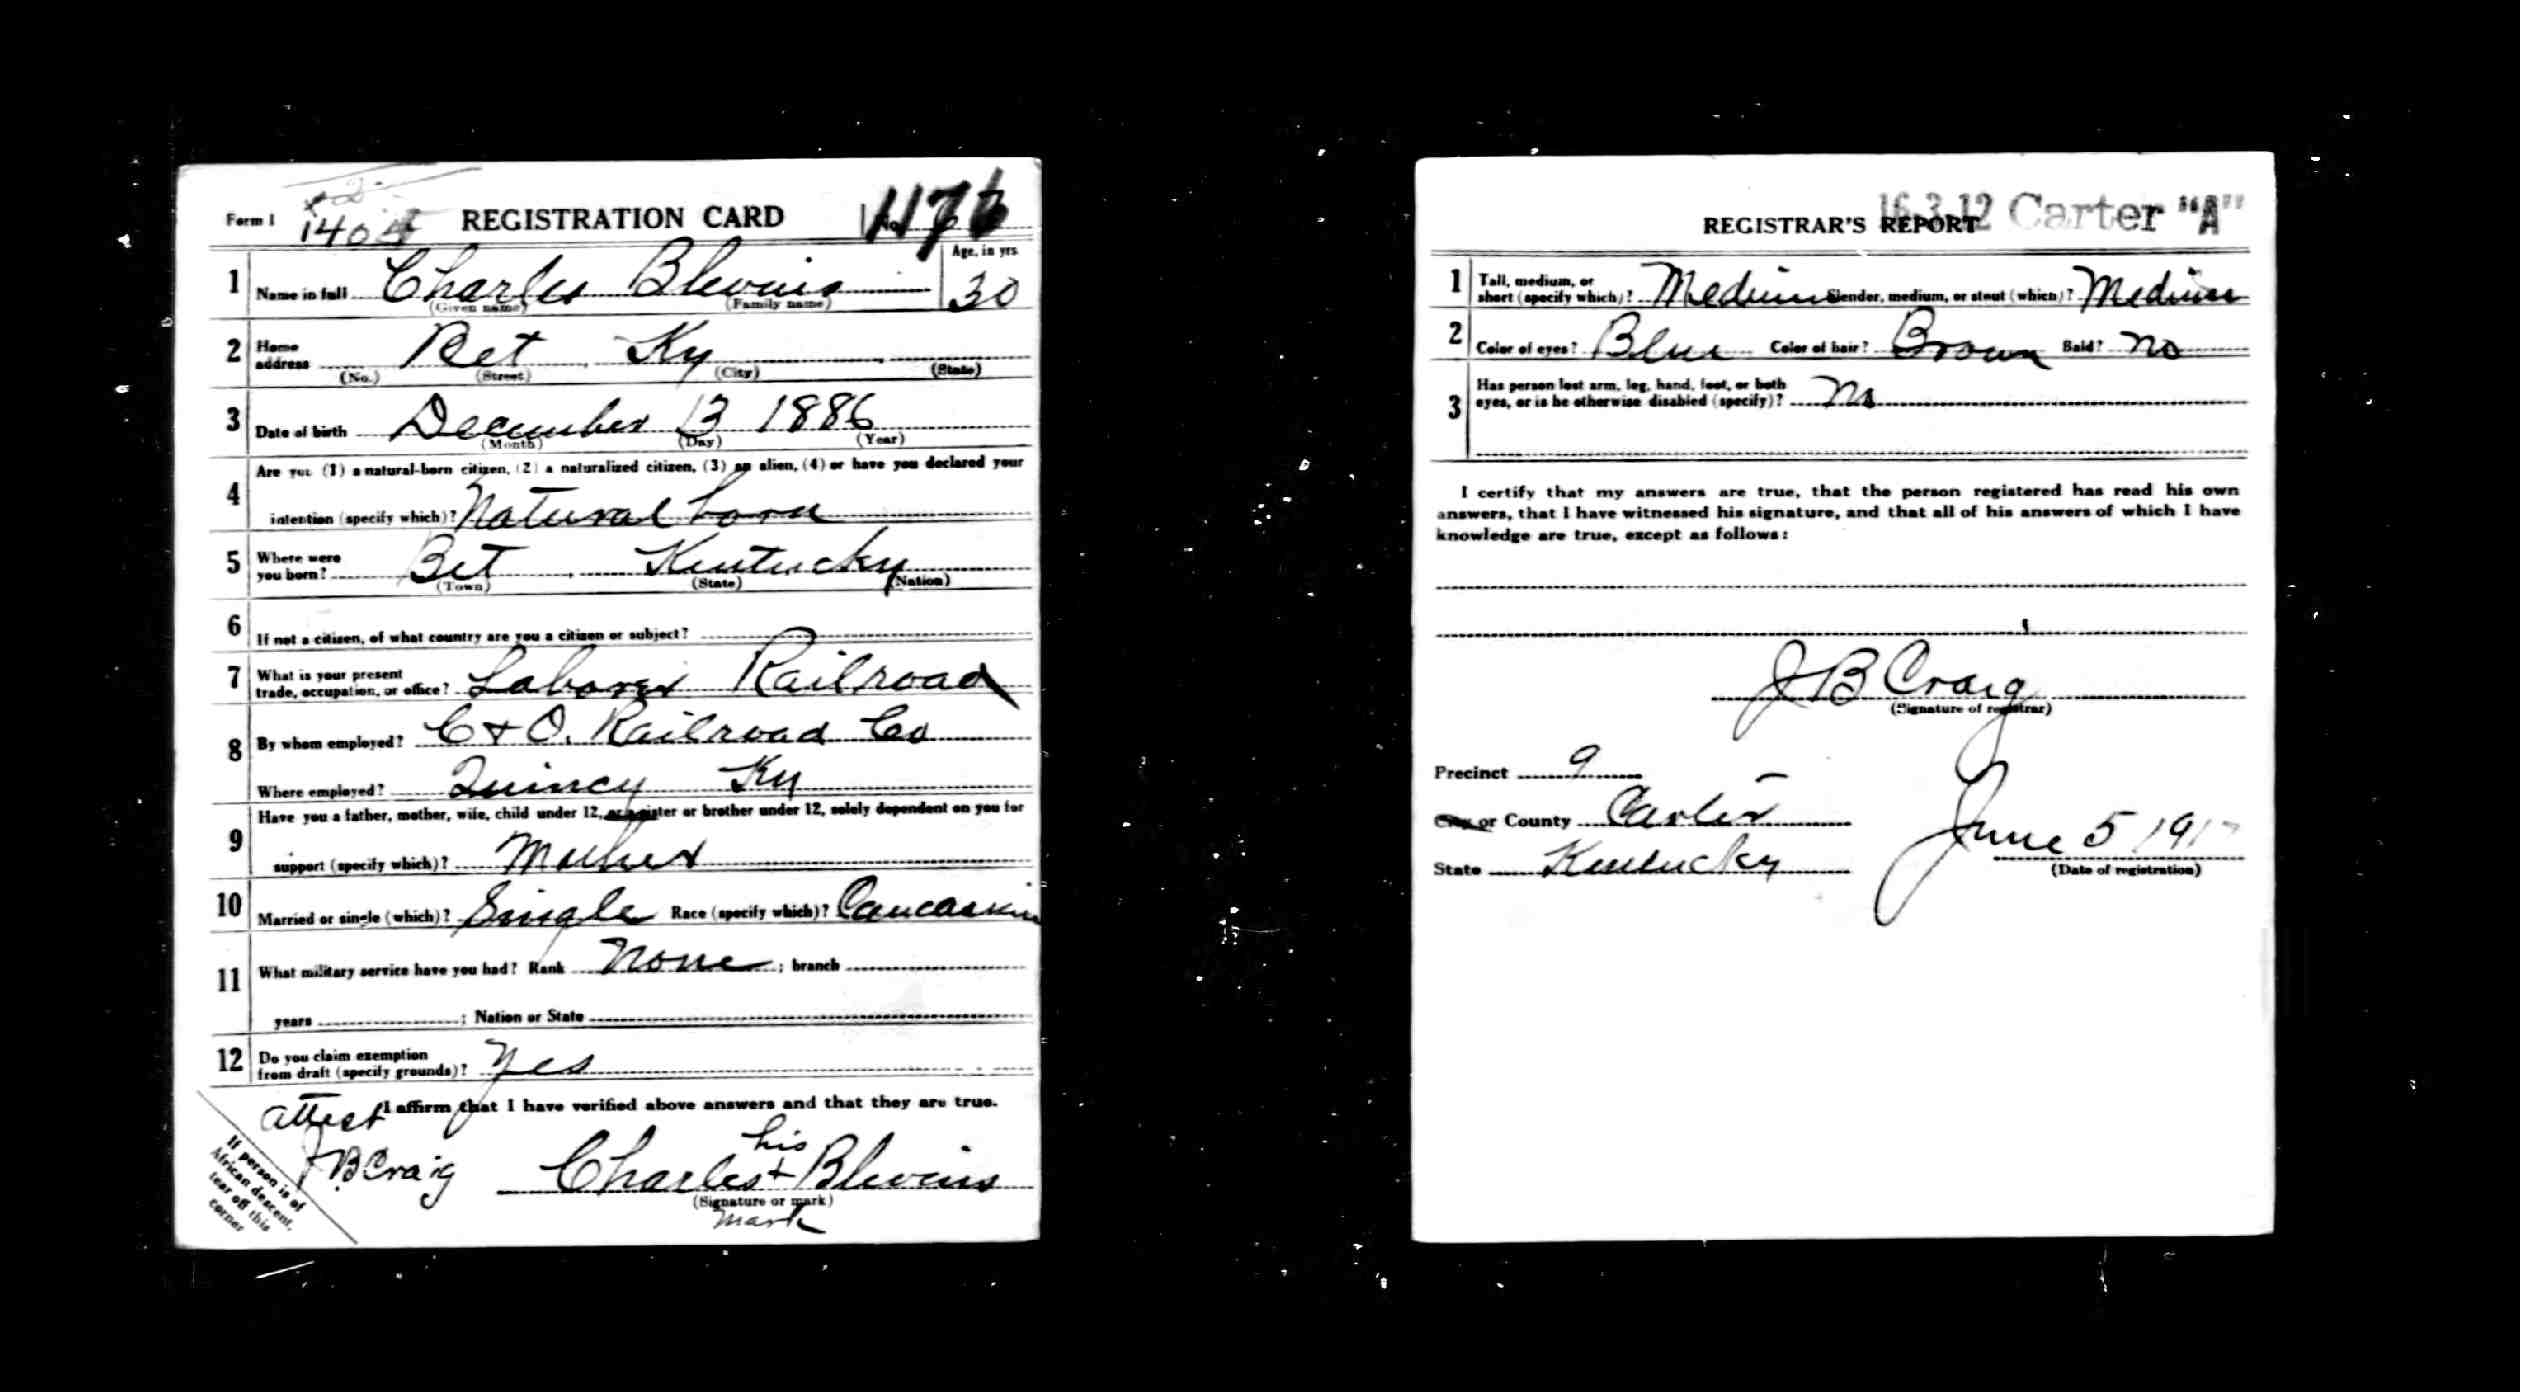 Form 1 1404 REGISTRATION CARD No. 1176
1 Name in full Charles Blevins Age, in yrs. 30
(Given name) (Family name)
2 Home address Bet Ky
(No.) (Street) (City) (State)
3 Date of birth December 13 1886
(Month) (Day) (Year)
4 Are you (1) a natural-born citizen, (2) a naturalized citizen, (3) an alien, (4) or have you declared your
intention (specify which)? Natural born
5 Where were you born? Bet Kentucky
(Town) (State) (Nation)
6 If not a citizen, of what country are you a citizen or subject?
7 What is your present trade, occupation, or office? Laborer Railroad
8 By whom employed? C + O. Railroad Co
Where employed? Quincy Ky
9 Have you a father, mother, wife, child under 12, or a sister or brother under 12, solely dependent on you for
support (specify which)? Mother
10 Married or single (which)? Single Race (specify which)? Caucasian
11 What military service have you had? Rank None ; branch
years ; Nation or State
12 Do you claim exemption from draft (specify grounds)? Yes
I affirm that I have verified above answers and that they are true.
attest
J B Craig
his
Charles + Blevins
(Signature or mark)
mark
If person is of
African descent,
tear off this
corner
16-3-12 Carter "A"
REGISTRAR'S REPORT
1 Tall, medium, or short (specify which)? Medium Slender, medium, or stout (which)? Medium
2 Color of eyes? Blue Color of hair? Brown Bald? No
3 Has person lost arm, leg, hand, foot, or both eyes, or is he otherwise disabled (specify)? No
I certify that my answers are true, that the person registered has read his own
answers, that I have witnessed his signature, and that all of his answers of which I have
knowledge are true, except as follows:
J B Craig
(Signature of registrar)
Precinct 9
City or County Carter
State Kentucky
June 5 1917
(Date of registration)